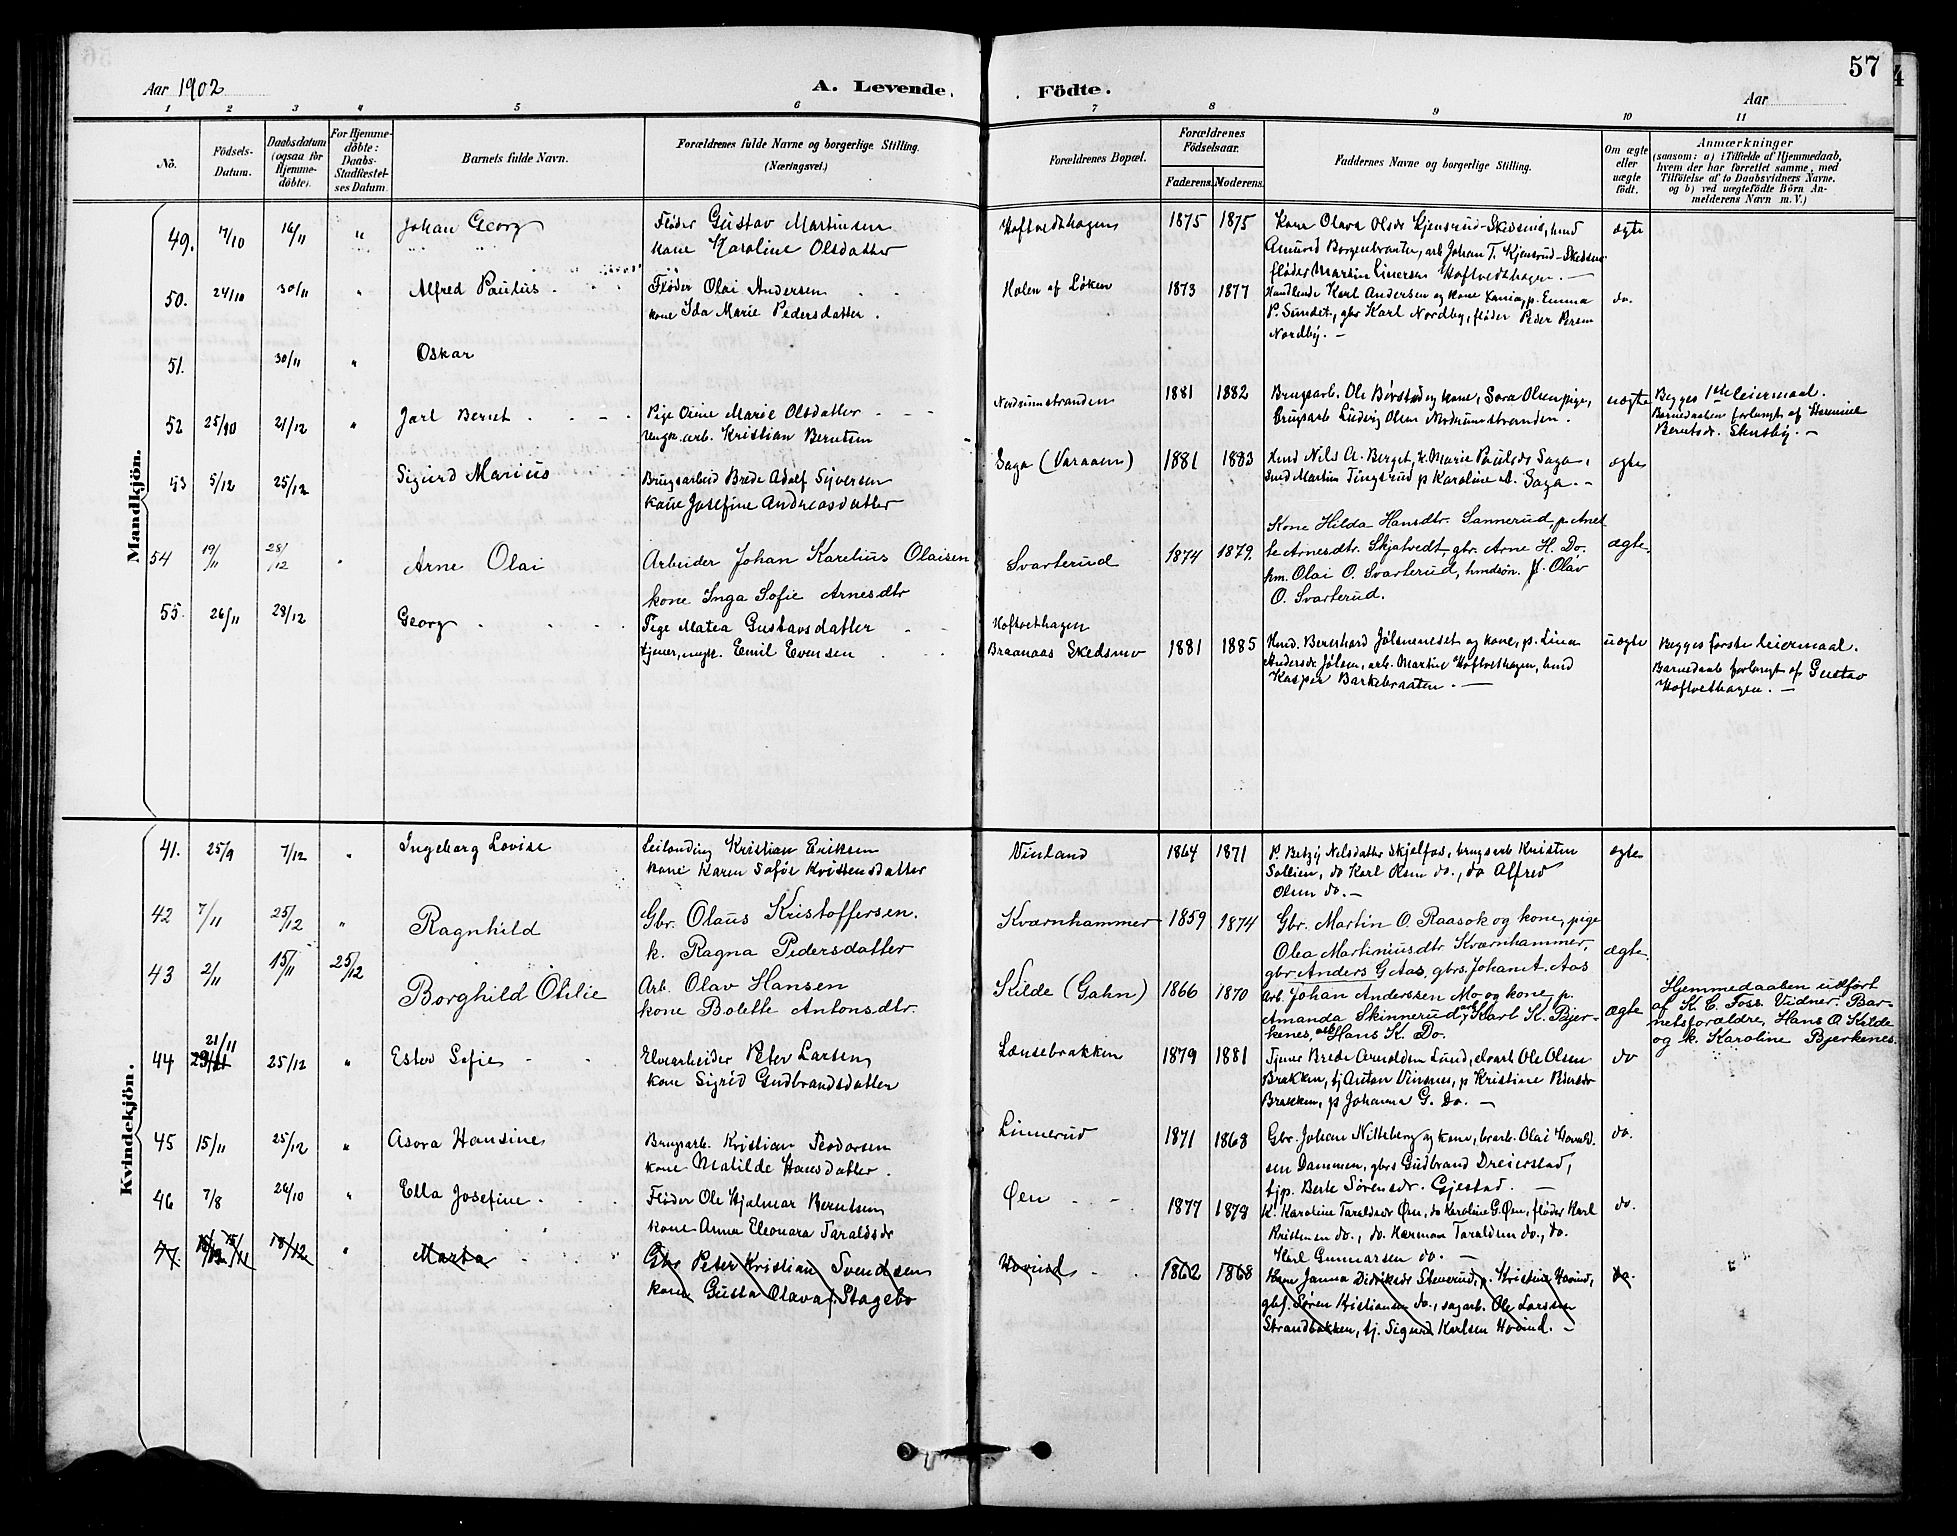 57
Aar 1902
A. Levende. Födte.
Aar
1 2 3 4 5 6 7 8 9 10 11
No.
Födsels-Datum.
Daabsdatum (ogsaa for Hjemme-döbte).
For Hjemme-döbte: Daabs-Stadfæstel-ses Datum.
Barnets fulde Navn.
Forældrenes fulde Navne og borgerlige Stilling.
(Næringsvei.)
Forældrenes Bopæl.
Forældrenes Födselsaar.
Faderens. Moderens.
Faddernes Navne og borgerlige Stilling.
Om ægte eller uægte födt.
Anmærkninger
(saasom: a) i Tilfælde af Hjemmedaab,
hvem der har forrettet samme, med
Tilföielse af to Daabsvidners Navne.
og b) ved uægtefödte Börn An-
melderens Navn m. V.)
Mandkjön.
49. 7/10 16/11 " Johan Georg
Fløder Gustav Martinsen
kone Karoline Olsdatter
Hoftvedthagen 1875 1875
Kone Olava Olsdr Kjensrud-Skedsmo, hmd
Amund Borgenbraaten, arb Johan T. Kjensrud-Skedsmo
fløder Martin Einersen Hoftvedthagen. —
ægte
50. 24/10 30/11 " Alfred Paulus
Fløder Olai Andersen
kone Ida Marie Pedersdatter.
Holen af Løken 1873 1877
Handlende Karl Andersen og kone p. Emma
P. Sundet, gbr Karl Nordby, fløder Peder Persen
Nordby. —
do.
51. 30/11 " Oskar
52 25/10 21/12 " Jarl Bernt
Pige Oline Marie Olsdatter
Ungk. arb. Kristian Berntsen
Nordsumstranden 1881 1882
Brugsarb. Ole Børstad og kone, Sora Olsen pige,
brugsarb Ludvig Olsen Nordsumstranden.
uægte
Begges 1ste leiermaal.
Barnedaaben forlangt af
Berntsdr. Skusby. —
53 5/12 25/12 Sigurd Marius
Brugsarbeid Brede Adolf Syversen
kone Josefine Andreasdatter
Saga (Varaaen) 1881 1883
Hmd Nils A. Berget, k. Marie Paulsdr Saga,
Hmd Martin Tingsrud p Karoline A. Saga. —
ægte
54 19/11 28/12 " Arne Olai
Arbeider Johan Karelius Olaisen
kone Inga Sofie Arnesdtr
Svarterud 1874 1879.
Kone Hilda Hansdtr. Sannerud, p. Anet
te Arnesdtr. Skjatvedt, gbr. Arne H. Do.
hm. Olai O. Svarterud, hmdsøn. Olav
O. Svarterud.
ægte.
55. 26/11 28/12 Georg
Pige Matea Gustavsdatter
tjener, ungk. Emil Evensen
Hoftvethagen
Braanaas Skedsmo 1881 1885
Hmd. Bernhard Jølsenneset og kone, p. Lina
Andersdr Jølsen, arb. Martin Hoftvethagen, hmd
Kasper Barkebraaten. —
uægte
Begges første leiermaal.
Barnedaab forlangt af Gustav
Hoftvethagen. —
Kvindekjön.
41. 25/9 7/12 " Ingeborg Lovise
Leilending Kristian Eriksen
kone Karen Sofie Kristensdatter
Vinland 1864 1871
P. Betzy Nilsdatter Skjelfos, brugsarb Kristen
Sollien, do Karl Olsen do., do Alfred
Olsen do. —
ægte
42 7/11 25/12 " Ragnhild
Gbr. Olaus Kristoffersen.
k. Ragna Pedersdatter
Kværnhammer 1859 1874
Gbr. Martin O. Raasok og kone, pige
Olea Martiniusdtr Kværnhammer,
gbr Anders G Aas, gbrs. Johan A. Aas
ægte.
43 2/11 15/11 25/12 Borghild Otilie
Arb. Olav Hansen
kone Bolette Antonsdtr.
Kilde (Gahn) 1866 1870
Arb. Johan Anderssen Mo og kone, p.
Amanda Skinnerud, arb. Karl K. Bjer-
kenes, arb. Hans K. Do.
ægte
Hjemmedaaben udført
af K. E. Foss. Vidner. Bar-
netsforældre, Hans O. Kilde
og k. Karoline Bjerkenes.
44 21/11 25/12 " Ester Sofie
Elvearbeider Peter Larsen
kone Sigrid Gudbrandsdatter
Lænsebrakken 1879 1881
Tjener Brede Arnoldsen Lund, elvearb Ole Olsen
Brakken, tj Anton Vinsnes, p Kristine Pedersdr
Brakken, p Johanna G. Do. —
do
45 15/11 25/12 " Asora Hansine
Brugsarb. Kristian Teodorsen
kone Matilde Hansdatter.
Linnerud 1871 1868
Gbr. Johan Nitteberg og kone, brarb. Olai Hovald-
sen Dammen, gbrs Gudbrand Dreierstad,
tjp. Berte Sørensdr. Gjestad. —
do.
46 7/8 26/10 " Ella Josefine
Fløder Ole Hjalmar Berntsen
kone Anna Eleonora Taraldsdr
Øen 1877 1879
K. Karoline Taraldsdr Øen, do Karoline G. Øen, fløder Karl
Kristensen do., do. Herman Taraldsen do., do.
Karl Gunnarsen do. —
do.
47. 15/11 18/12 " Marta
Gbr Peter Kristian Svendsen
kone Gusta Olava f. Stagebo
Hovind 1862 1868
Kone Janna Didriksdr Stenerud, p. Kristine Hovind,
gbf. Søren Kristiansen do., sagarb. Ole Larssen
Strandbakken, tj. Sigurd Karlsen Hovind. —
do.